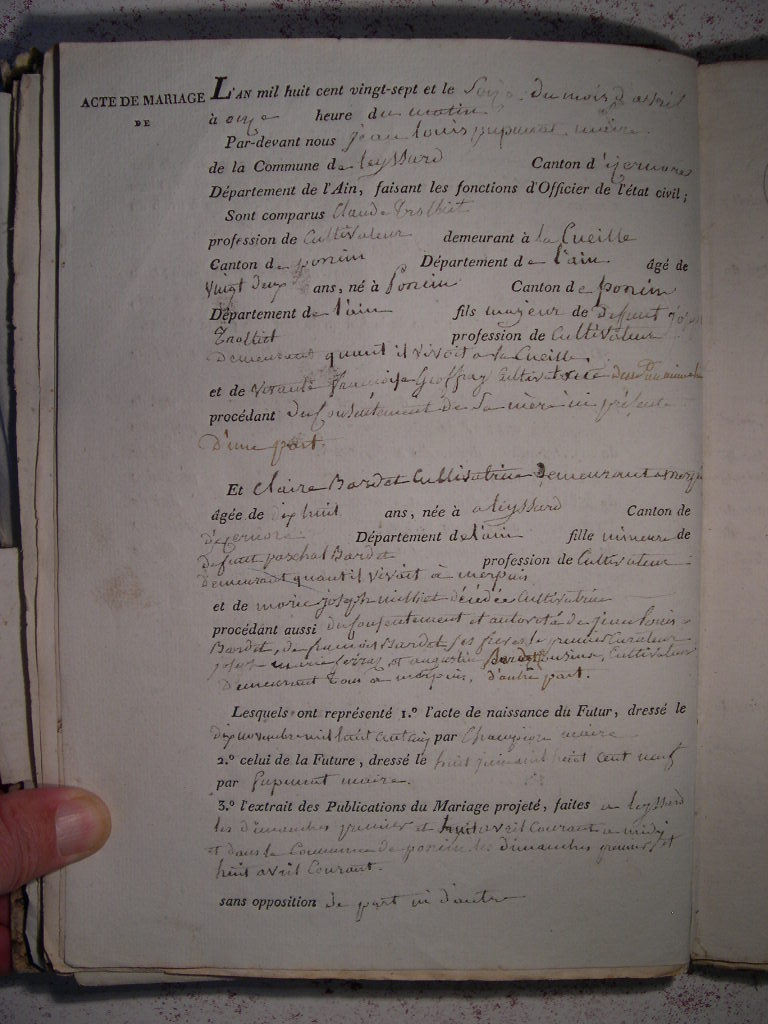 ACTE DE MARIAGE
DE
L'AN mil huit cent vingt-sept et le Seize du mois d'avril
à onze heure du matin
Par-devant nous jean louis pupunat maire
de la Commune de leyssard Canton d'izernore
Département de l'Ain, faisant les fonctions d'Officier de l'état civil;
Sont comparus Claude
profession de Cultivateur demeurant à la Cueille
Canton de poncin Département de l'ain âgé de
vingt deux ans, né à Poncin Canton de poncin
Département de l'ain fils majeur de defunt
profession de Cultivateur
Demeurant quant il vivoit a la Cueille,
et de françoise Geoffray Cultivatrice
procédant du Consentement de Sa mère ici présente
D'une part.
Et Claire Bardet Cultivatrice Demeurant a
âgée de dix huit ans, née à a leyssard Canton de
d'izernore Département de l'ain fille mineure de
defunt paschal Bardet profession de Cultivateur
Demeurant quant il vivoit à
et de marie joseph décédée Cultivatrice
procédant aussi du Consentement et autorité de jean louis
Bardet, de françois Bardet ses freres, le premier Curateur
et augustin Bardet Cousins, Cultivateur
Demeurant Tous a d'autre part.
Lesquels ont représenté 1.º l'acte de naissance du Futur, dressé le
par Champion maire
2.º celui de la Future, dressé le huit cent neuf
par Pupunat maire.
3.º l'extrait des Publications du Mariage projeté, faites a leyssard
les dimanches premier et huit avril Courant a midi
et dans la Commune de poncin les dimanches premier et
huit avril Courant.
sans opposition de part ni d'autre